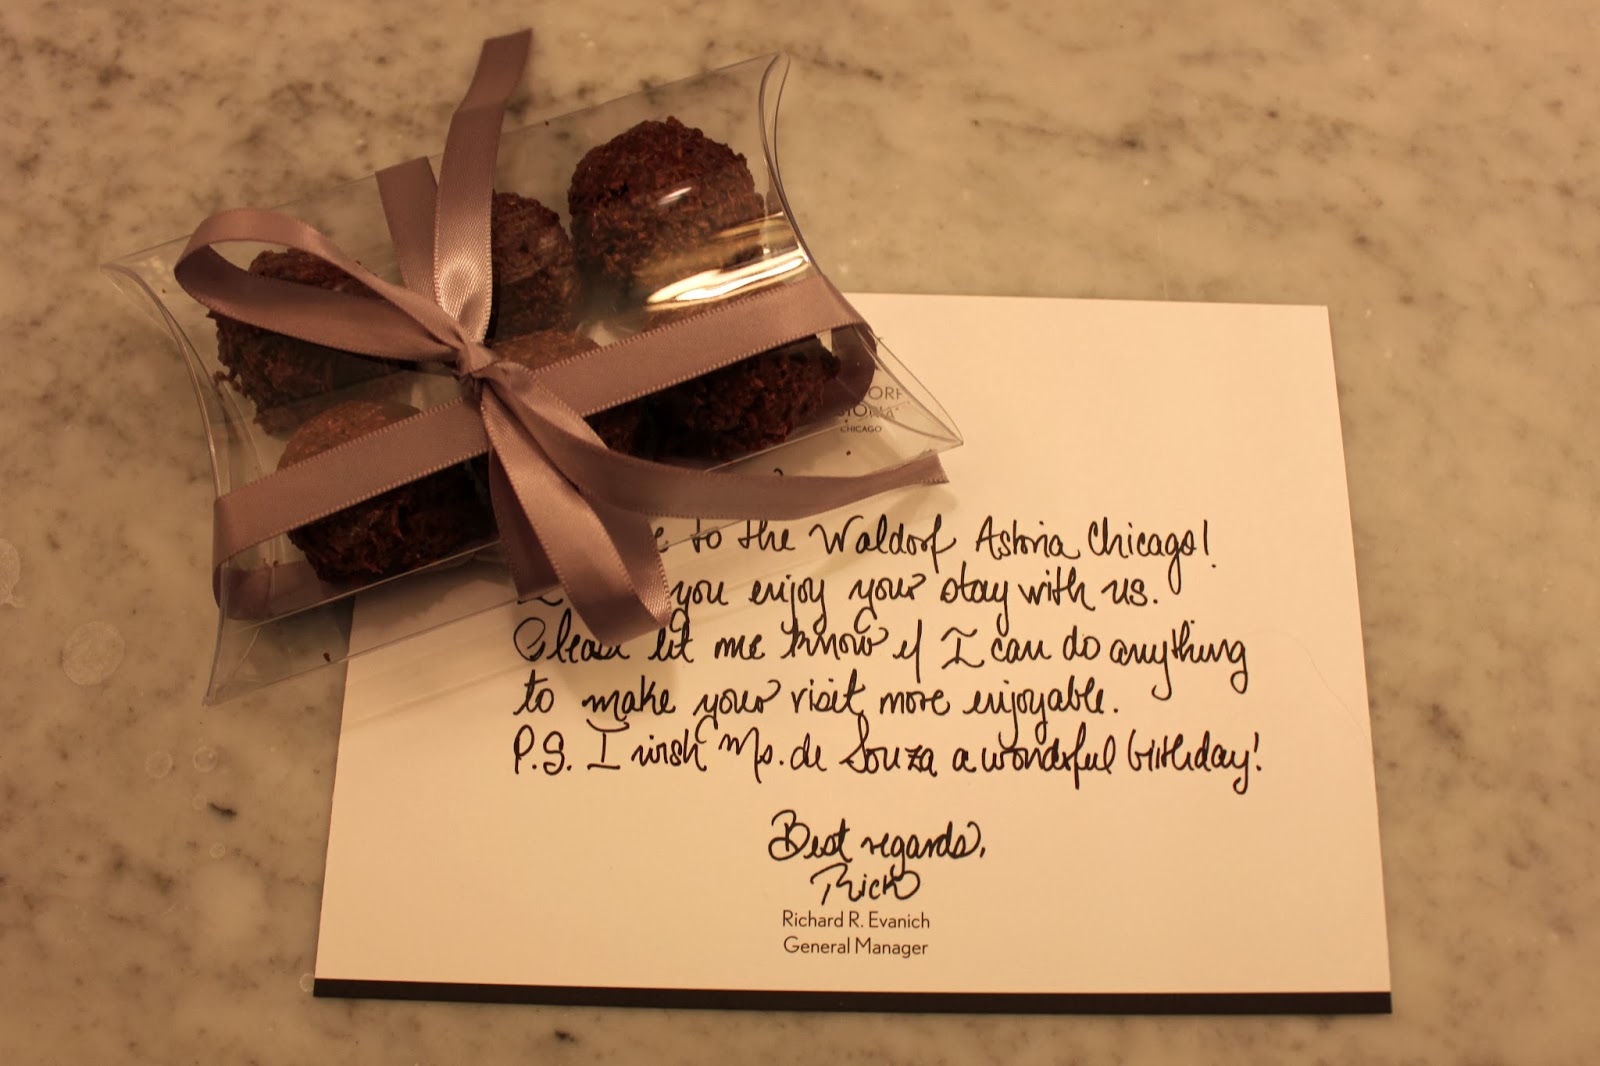 CHICAGO
to the Waldorf Astoria Chicago!
you enjoy your stay with us.
Please let me know if I can do anything
to make your visit more enjoyable.
P.S. I wish Ms. de Souza a wonderful birthday!
Best regards,
Rick
Richard R. Evanich
General Manager